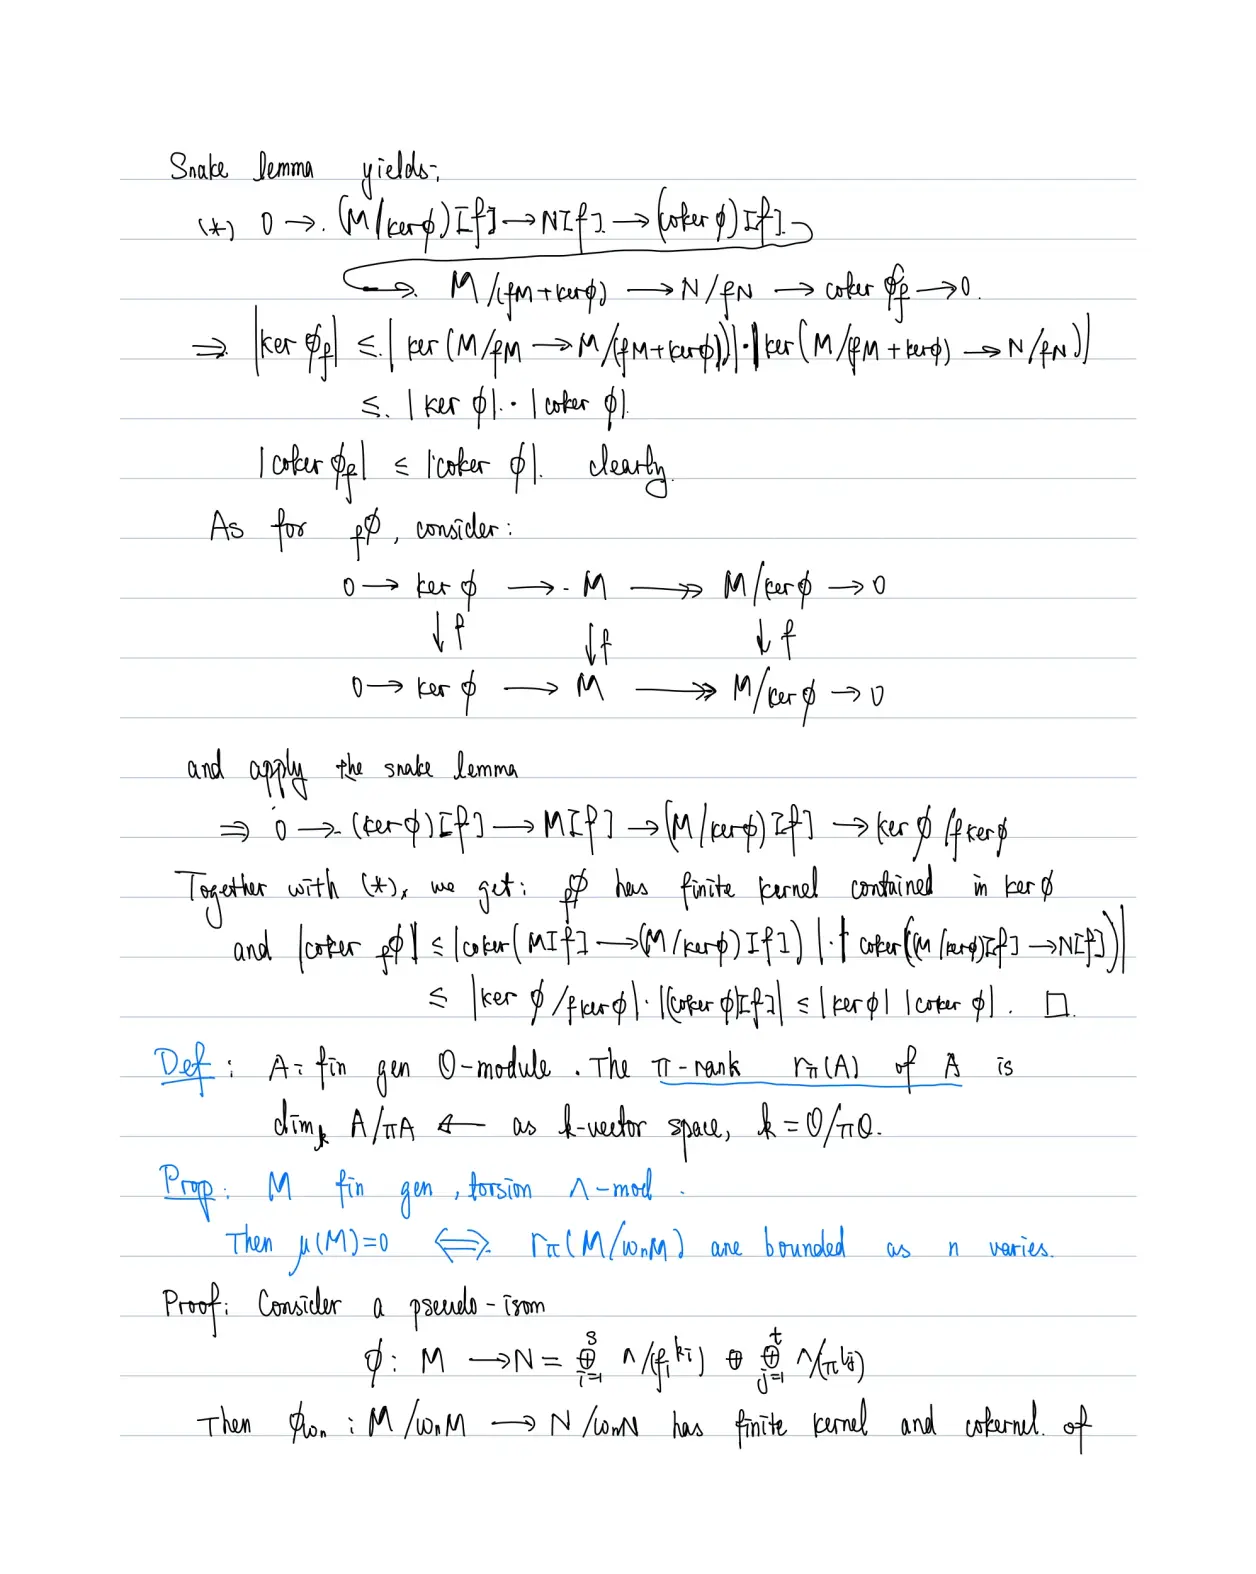 Snake lemma yields:
(*) 0 → (M/ker φ)[f] → N[f] → (coker φ)[f]
→ M/(fM+kerφ) → N/fN → coker φ_f → 0.
⇒ |ker φ_f| ≤ |ker (M/fM → M/(fM+kerφ))|·|ker (M/fM+kerφ) → N/fN)|
≤ |ker φ|·|coker φ|.
|coker φ_f| ≤ |coker φ|. clearly.
As for _fφ, consider:
0 → ker φ → M ↠ M/ker φ → 0
↓f ↓f ↓f
0 → ker φ → M ↠ M/ker φ → 0
and apply the snake lemma
⇒ 0 → (ker φ)[f] → M[f] → (M/kerφ)[f] → ker φ/f kerφ
Together with (*), we get: _fφ has finite kernel contained in ker φ
and |coker _fφ| ≤ |coker(M[f] → (M/kerφ)[f])|·|coker((M/kerφ)[f] → N[f])|
≤ |ker φ/f kerφ|·|(coker φ)[f]| ≤ |ker φ| |coker φ|. □.
Def: A = fin gen O-module. The π-rank r_π(A) of A is
dim_k A/πA ← as k-vector space, k = O/πO.
Prop: M fin gen, torsion Λ-mod.
Then μ(M)=0 ⟺ r_π(M/ω_nM) are bounded as n varies.
Proof: Consider a pseudo-isom
φ: M → N = ⊕_{i=1}^{s} Λ/(f_i^{k_i}) ⊕ ⊕_{j=1}^{t} Λ/(π^{l_j})
Then φ_{ω_n} : M/ω_nM → N/ω_nN has finite kernel and cokernel. of